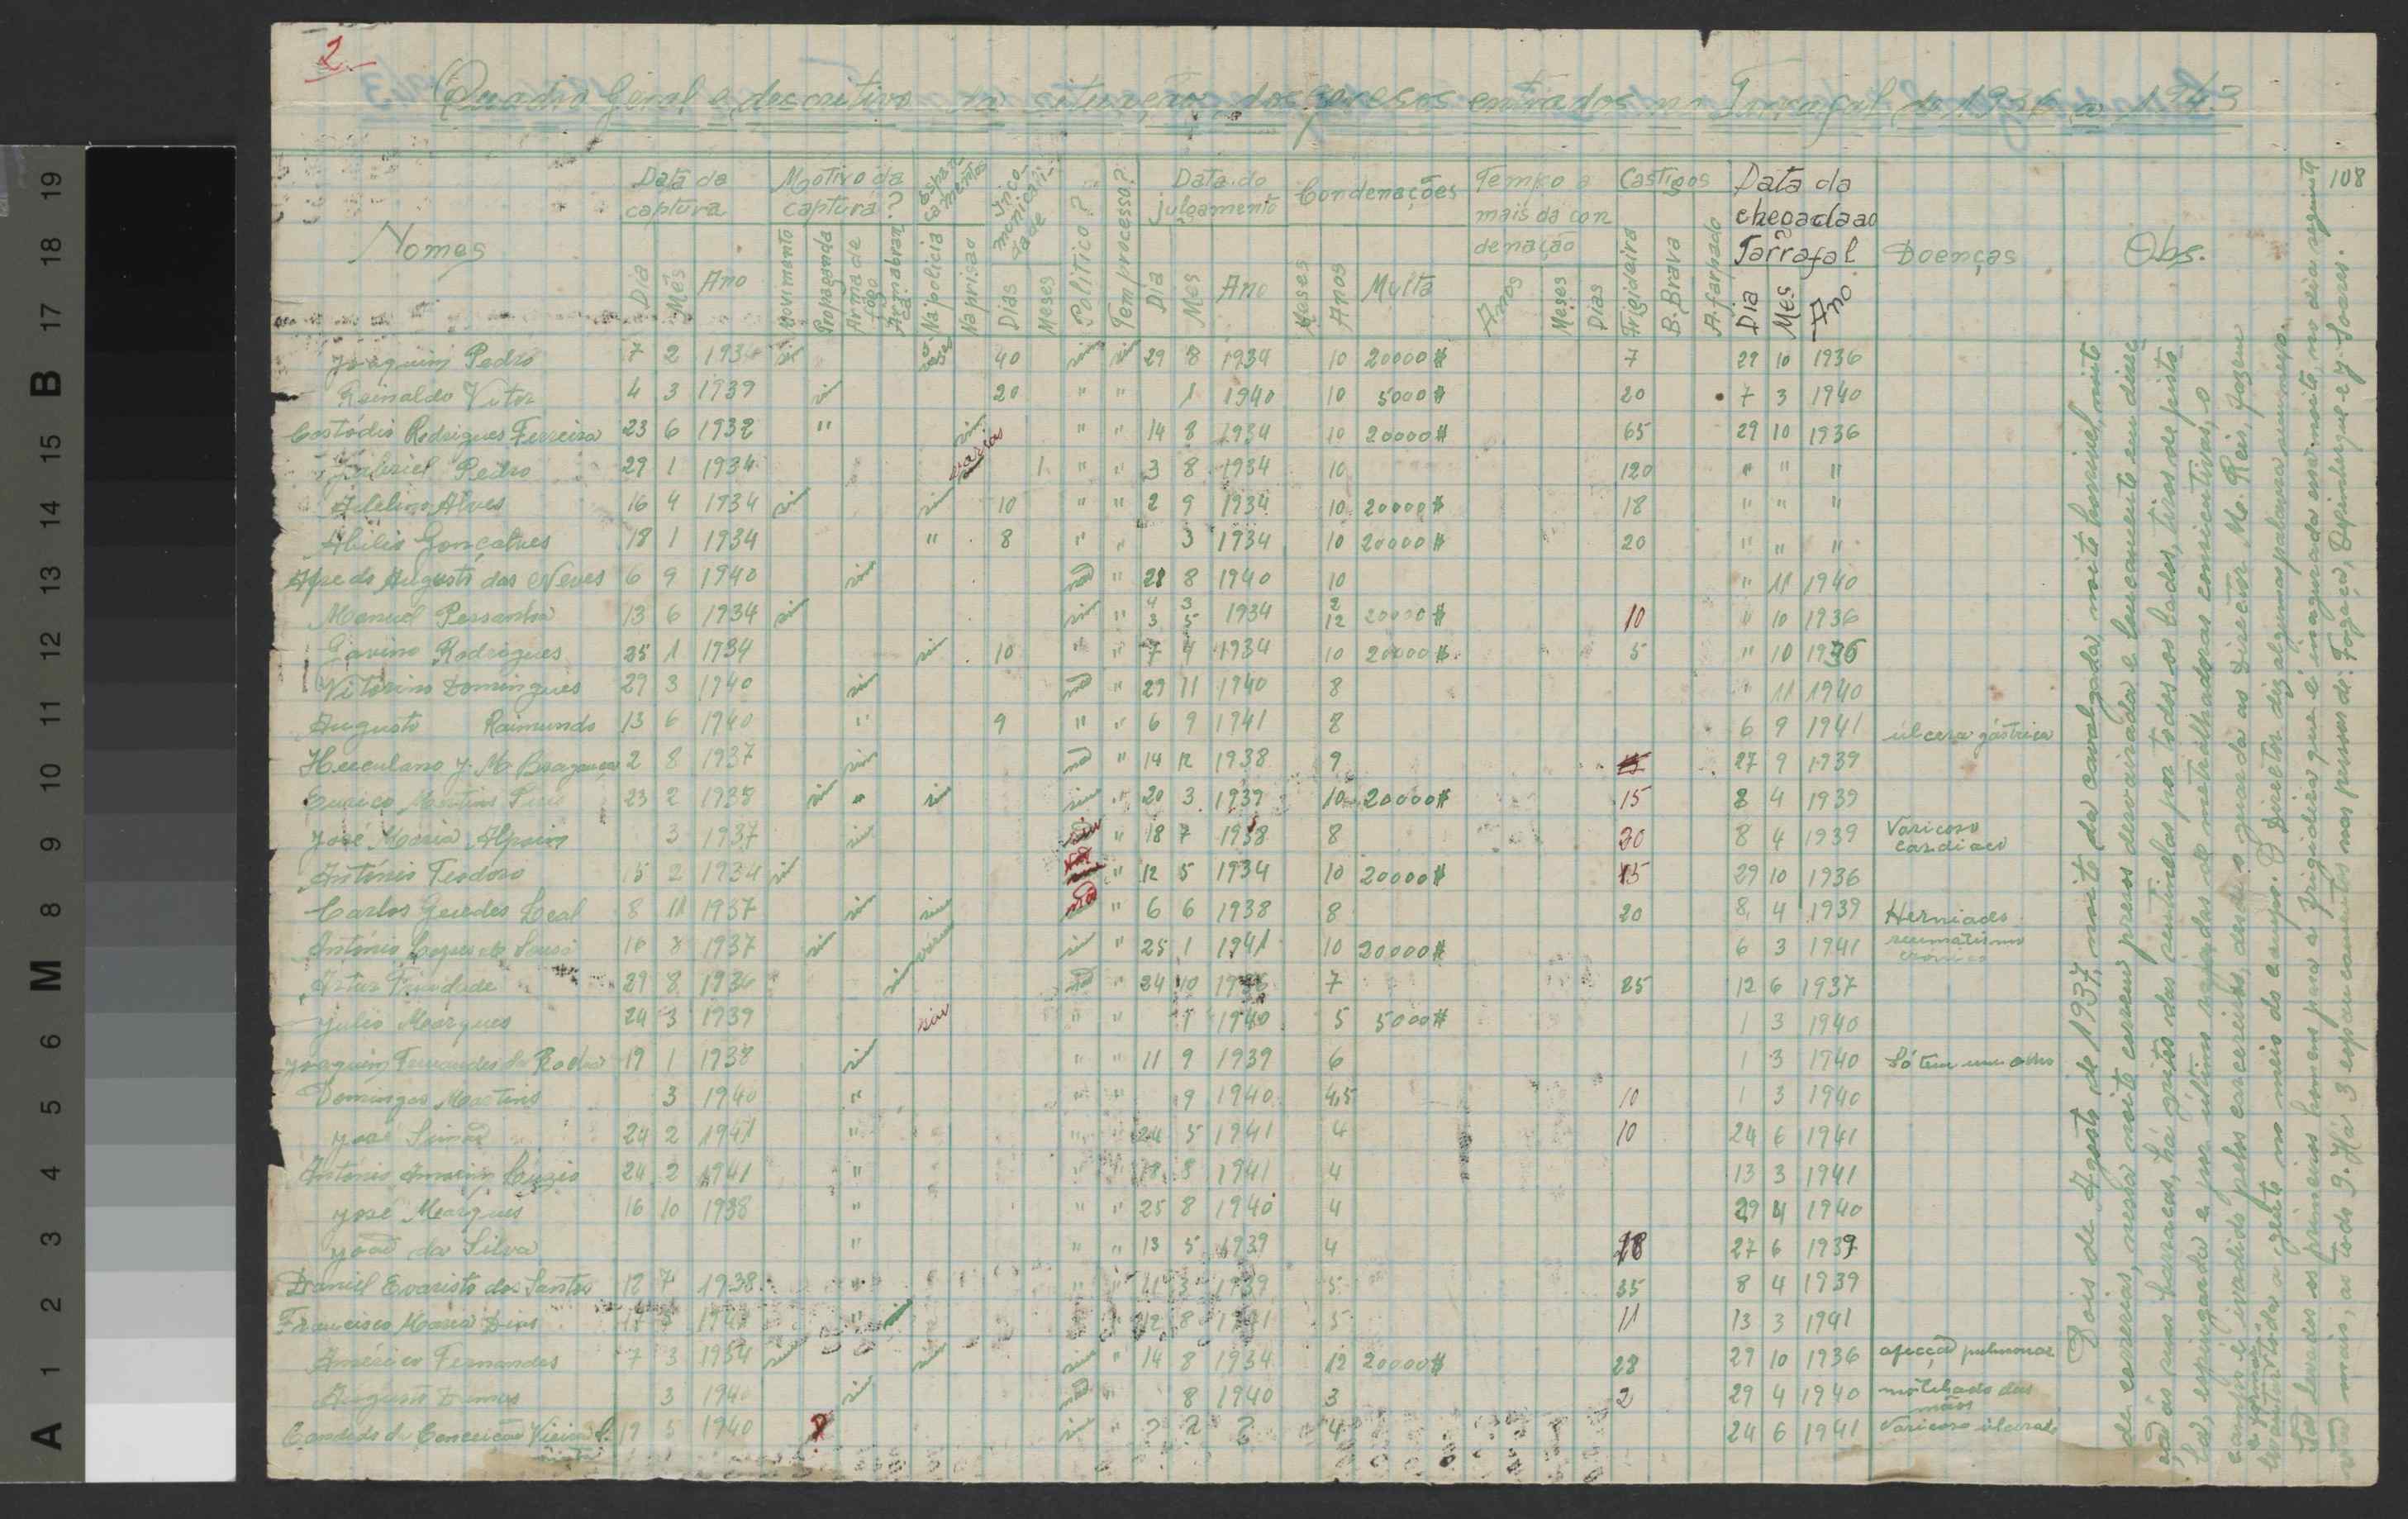 2
Quadro Geral e descritivo da situação dos presos entrados no Tarrafal de 1936 a 1943
108
Nomes
Data da captura
Dia Mês Ano
Motivo da captura?
Movimento Propaganda Arma de fogo Arma branca
Espancamentos
Na policia Na prisão
Incomonicalidade
Dias Meses
Politico?
Tem processo?
Data do julgamento
Dia Mes Ano
Condenações
Meses Anos Multa
Tempo a mais da condenação
Anos Meses Dias
Castigos
Frigideira B. Brava A. farpado
Data da chegada ao Tarrafal
Dia Mes Ano
Doenças
Obs.
Joaquim Pedro 7 2 1934 sim 40 sim sim 29 8 1934 10 20000$ 7 29 10 1936
Reinaldo Vitor 4 3 1939 sim 20 " " 1 1940 10 5000$ 20 7 3 1940
Costódio Rodrigues Ferreira 23 6 1932 " sim " " 14 8 1934 10 20000$ 65 29 10 1936
Gabriel Pedro 29 1 1934 varias 1 " " 3 8 1934 10 120 " " "
Adelino Alves 16 4 1934 sim sim 10 " " 2 9 1934 10 20000$ 18 " " "
Abilio Gonçalves 18 1 1934 " 8 " " 3 1934 10 20000$ 20 " " "
Alfredo Augusto das Neves 6 9 1940 sim não " 28 8 1940 10 " 11 1940
Manuel Pessanha 13 6 1934 sim sim " 4 3 3 5 1934 2 12 20000$ 10 " 10 1936
Gavino Rodrigues 25 1 1934 sim 10 " " 7 4 1934 10 20000$ 5 " 10 1936
Vitorino Domingues 29 3 1940 sim não " 29 11 1940 8 " 11 1940
Augusto Raimundo 13 6 1940 " 9 " " 6 9 1941 8 6 9 1941 úlcera gástrica
Herculano J. M. Bragança 2 8 1937 sim não " 14 12 1938 9 27 9 1939
Eurico Martins 23 2 1938 sim " sim sim " 20 3 1939 10 20000$ 15 8 4 1939
José Maria Alpoim 3 1937 sim sim " 18 7 1938 8 20 8 4 1939 Varicoso cardiaco
António Teodoro 15 2 1934 sim " 12 5 1934 10 20000$ 15 29 10 1936
Carlos Guedes Leal 8 11 1937 sim sim não " 6 6 1938 8 20 8 4 1939 Herniado
António Lopes de Sousa 16 8 1937 sim várias sim " 25 1 1941 10 20000$ 6 3 1941 reumatismo cronico
Artur Trindade 29 8 1936 sim não " 24 10 7 25 12 6 1937
Julio Marques 24 3 1939 sim " " 1 1940 5 5000$ 1 3 1940
Joaquim Fernandes da Rocha 19 1 1938 sim " " 11 9 1939 6 1 3 1940 Só tem um olho
Domingos Martins 3 1940 " " " 9 1940 4,5 10 1 3 1940
José Simão 24 2 1941 " " " 24 5 1941 4 10 24 6 1941
António Amorim 24 2 1941 " " " 18 8 1941 4 13 3 1941
José Marques 16 10 1938 " " " 25 8 1940 4 29 4 1940
João da Silva " " " 13 5 1939 4 18 27 6 1939
Daniel Evaristo dos Santos 12 7 1938 " " " 11 3 1939 5 35 8 4 1939
Francisco Maria Dias 17 " sim " 12 8 1941 5 11 13 3 1941
Américo Fernandes 7 3 1934 sim sim sim " 14 8 1934 12 20000$ 28 29 10 1936 afecção pulmonar
Augusto 3 194 sim não " 8 1940 3 2 29 4 1940 motilado das mãos
Candido da Conceição Vieira 19 5 1940 ? sim " ? ? ? 4 24 6 1941 Varicoso ulcerado
Dois de Agosto de 1937, noite da cavalgada, noite horrivel, noite
de correrias, nessa noite correm presos desvairada e loucamente em direc
ção ás suas barracas, há gritos das sentinelas por todos os lados, tiros de pisto
la, espingarda e por ultimo rajadas de metralhadoras consecutivas, o
campo é invadido pelos carcereiros, desde o guarda ao Director M. Reis, fazem
levantar toda a gente no meio do campo. O Director diz algumas palavras
São levados os primeiros homens para a frigideira que é inaugurada essa noite, no dia seguinte
vão mais, ao todo 9. Há 3 espancamentos nas pessoas de: Fogaça, e J. Soares.